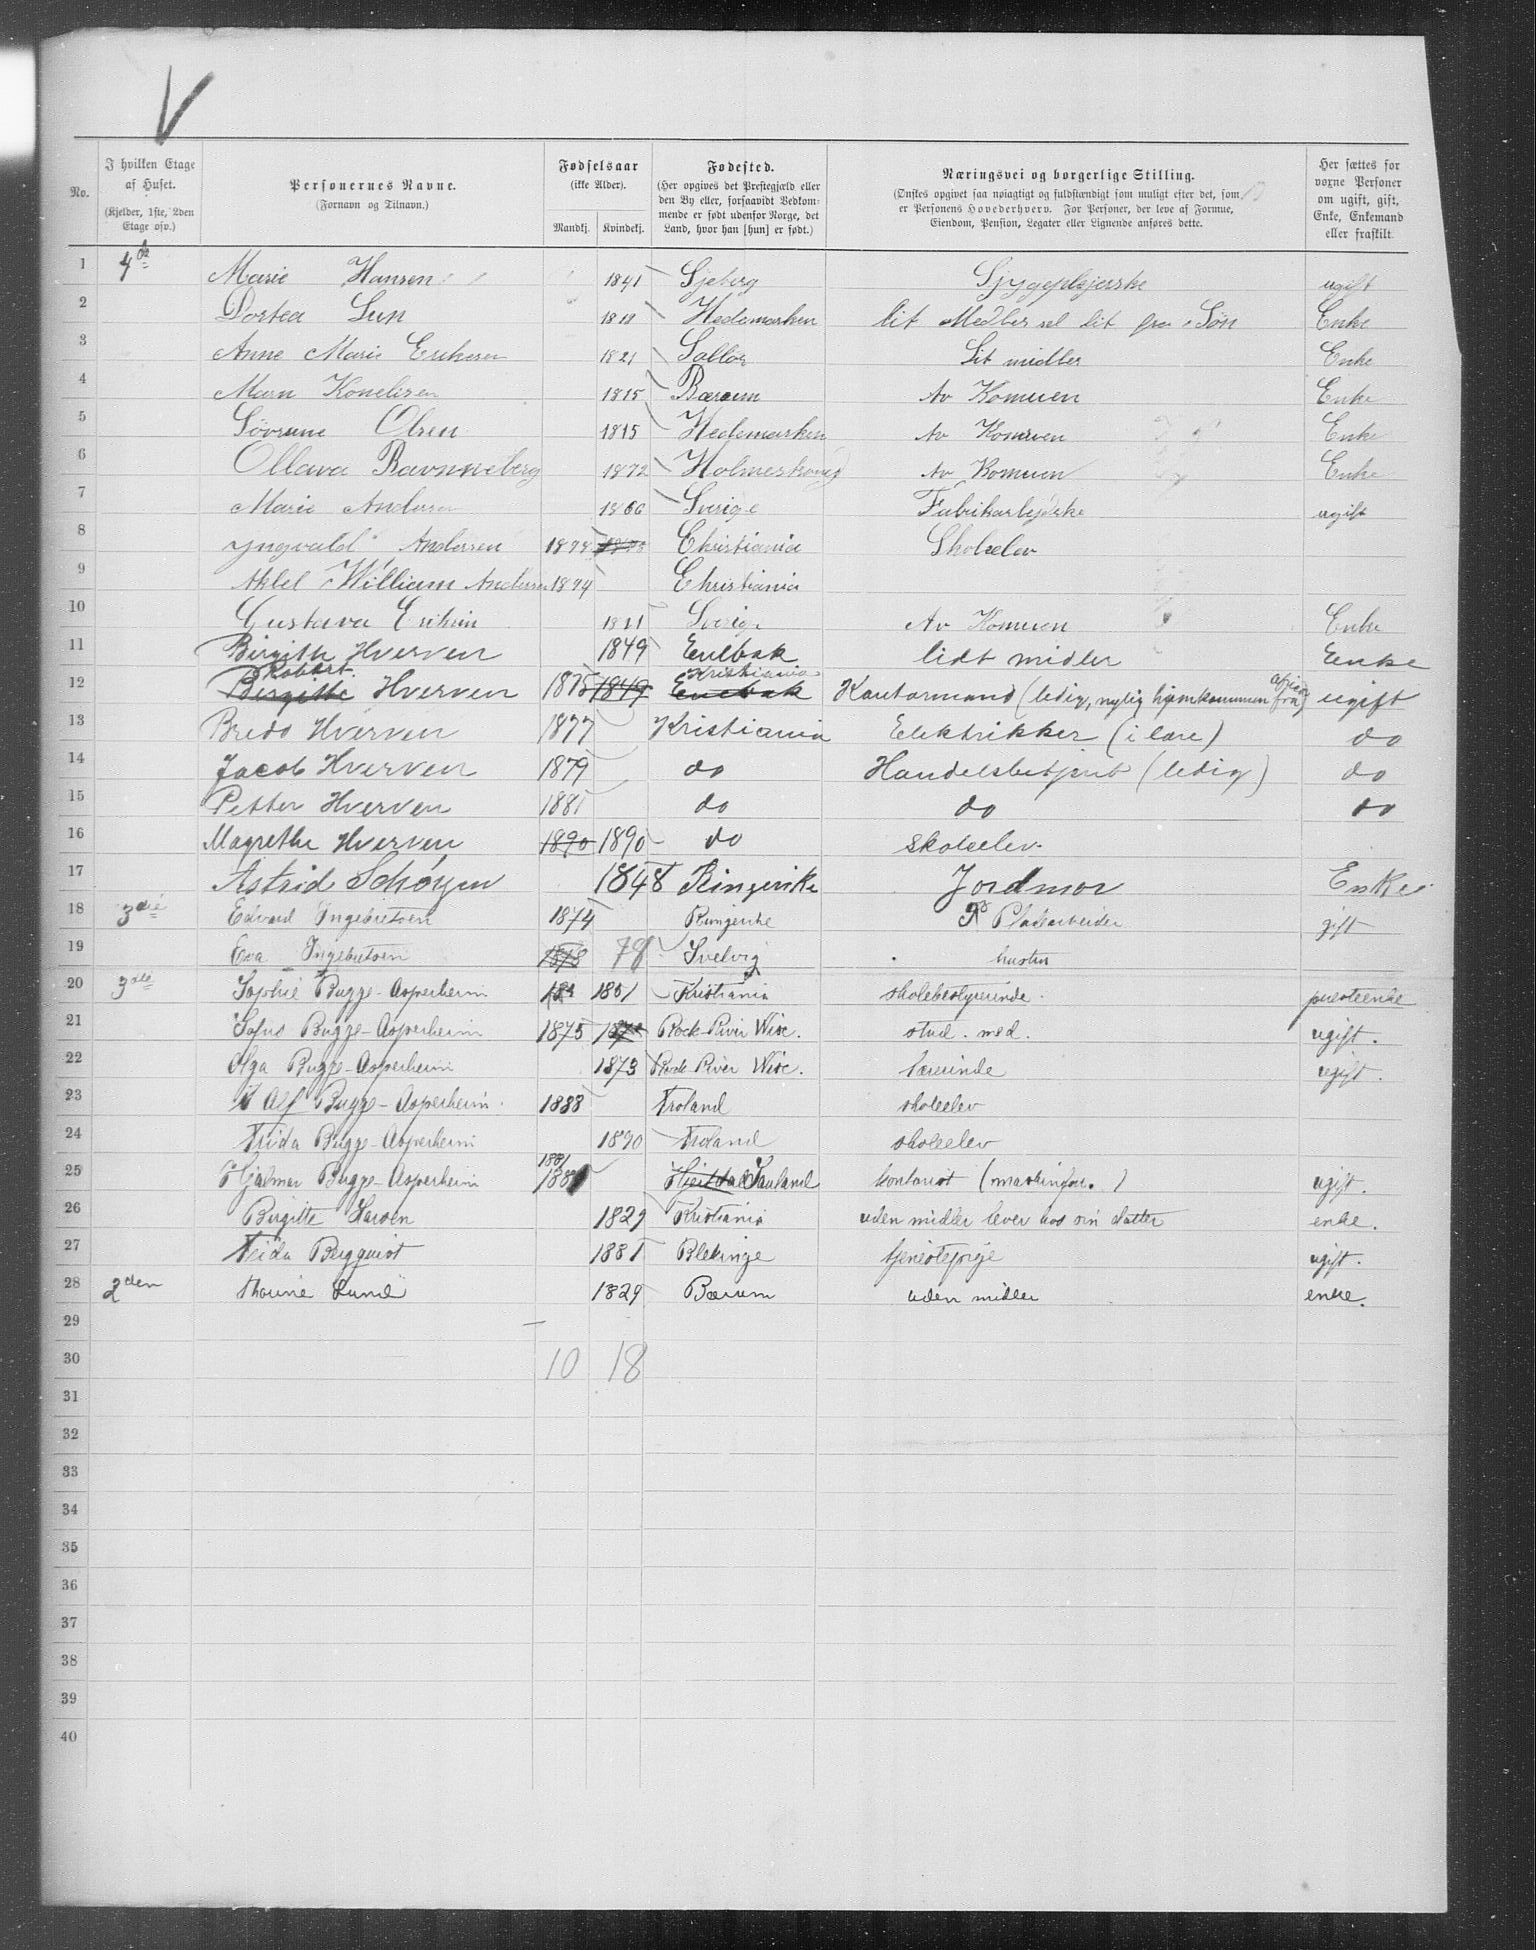 V
No. | I hvilken Etage af Huset. (Kjelder, 1ste, 2den Etage osv.) | Personernes Navne. (Fornavn og Tilnavn.) | Fødselsaar (ikke Alder). Mandkj. Kvindekj. | Fødested. (Her opgives det Præstegjæld eller den By eller, forsaavidt Vedkommende er født udenfor Norge, det Land, hvor han [hun] er født.) | Næringsvei og borgerlige Stilling. (Ønskes opgivet saa nøiagtigt og fuldstændigt som muligt efter det, som er Personens Hovederhverv. For Personer, der leve af Formue, Eiendom, Pension, Legater eller Lignende anføres dette. | Her sættes for voxne Personer om ugift, gift, Enke, Enkemand eller fraskilt.
1 4de Marie Hansen 1841 Sjeberg Sjygeplejerske ugift
2 Dortea Lun 1818 Hedemarken lit fra Søn Enke
3 Anne Marie Eriksen 1821 Solløe Lit midler Enke
4 Marn 1815 Bæraum Av Komuen Enke
5 Olsen 1815 Hedemarken Av Komuen Enke
6 Ollava Ravnneberg 1872 Av Komuen Enke
7 Marie Andersen 1866 Sverige Fabrikarbejdske ugift
8 Yngvald Andersen Christiania Skoleelev
9 William Andersen 1894 Christiania
10 Gustava Sverige Av Komuen Enke
11 Birgithe Hverven 1849 Enebak lidt midler Enke
12 Robart Birgithe Hverven 1875 1849 Kristiania Enebak Kontormand (ledig, nylig hjemkommen fra Africa) ugift
13 Bredo Hverven 1877 Kristiania Elektrikker (i lære) do
14 Jacob Hverven 1879 do Handelsbetjent (ledig) do
15 Petter Hverven 1881 do do do
16 Magrethe Hverven 1890 1890 do skoleelev.
17 Astrid Schøyen 1848 Ringerike Jordmor Enke.
18 3die Edvard Ingebretsen 1874 Ringerike Pladearbeider gift
19 Eva Ingebretsen 1878 78 Svelvig hustru
20 3die Sophie Bugge-Asperheim 1851 Kristiania skolebestyrerinde. præsteenke
21 Sofus Bugge-Asperheim 1875 Rock-River Wisc. stud. med. ugift.
22 Olga Bugge-Asperheim 1873 Rock River Wisc. lærerinde ugift.
23 Alf Bugge-Asperheim. 1888 Froland skoleelev
24 Frida Bugge-Asperheim 1890 Froland skoleelev
25 Hjalmar Bugge-Asperheim 1881 188 Hjertdal Sauland kontorist (maskinforr.) ugift.
26 Birgitte Larsen 1829 Kristiania uden midler lever hos sin datter enke.
27 Frida Bergquist 1881 Blekinge tjenestepige ugift.
28 2den Thorine Lund 1829 Bærum uden midler enke.
29
30 10 18
31
32
33
34
35
36
37
38
39
40